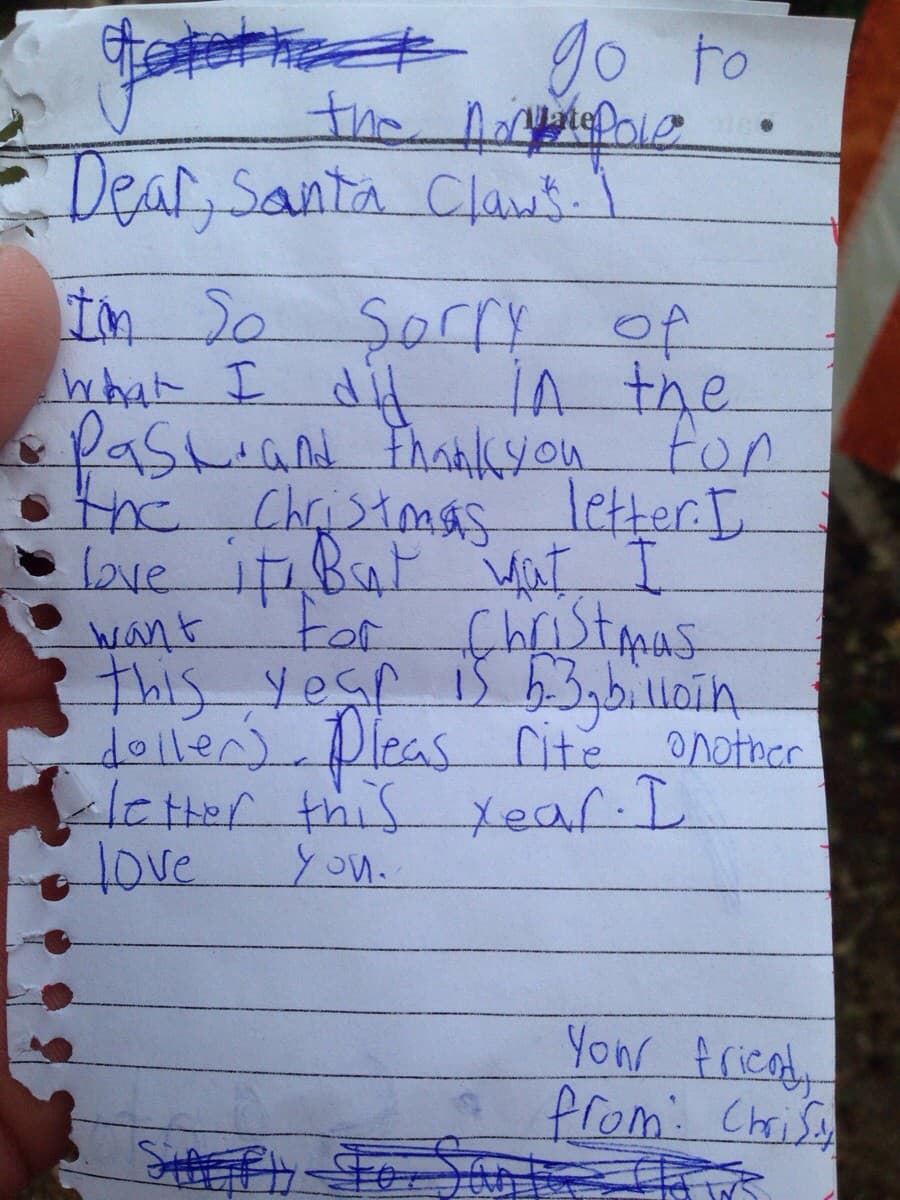 go to
the nor pole
Date
Dear, Santa Claws.
Im So Sorry of
what I did in the
Past. and thankyou for
the Christmas letter. I
love it. But wat I
want for Christmas
this year is 53, billoin
dollers. Pleas rite another
letter this year. I
love you.
Your friend,
from: Chrissy